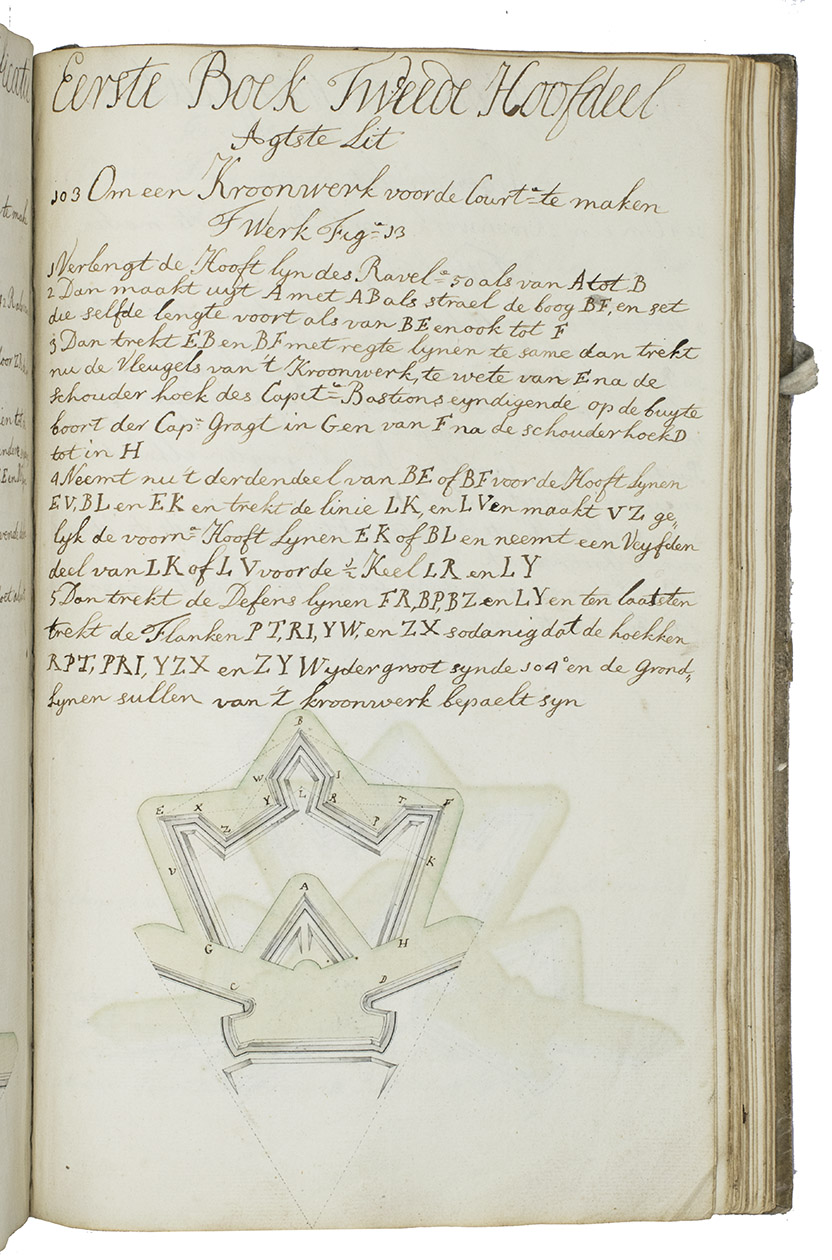 Eerste Boek Tweede Hoofdeel
Agtste Lit
103 Om een Kroonwerk voor de Court.ᵉ te maken
F Werk Fig.ᵉ 13
1 Verlengt de Hooft lyn des Ravel.ᵉ 50 als van A tot B
2 Dan maakt uyt A met AB als strael de boog BF, en set
die selfde lengte voort als van BE en ook tot F
3 Dan trekt EB en BF met regte lynen te same dan trekt
nu de Vleugels van 't Kroonwerk, te wete van E na de
schouder hoek des Capit.ᵉ Bastions eyndigende op de buyte
boort der Cap.ᵉ Gragt in G en van F na de schouderhoek D
tot in H
4 Neemt nu 't derdendeel van BE of BF voor de Hooft Lynen
EV, BL en EK en trekt de linie LK, en LV en maakt VZ ge„
lyk de voorn.ᵉ Hooft Lynen EK of BL en neemt een Veyfden
deel van LK of LV voor de ½ Keel LR en LY
5 Dan trekt de Defens lynen FR, BP, BZ en LY en ten laatsten
trekt de Flanken PT, RI, YW, en ZX sodanig dat de hoekken
RPT, PRI, YZX en ZYW yder groot synde 104° en de Grond„
Lynen sullen van 't kroonwerk bepaelt syn
B
W I
E X Y L R T F
Z P
V K
A
G H
C D